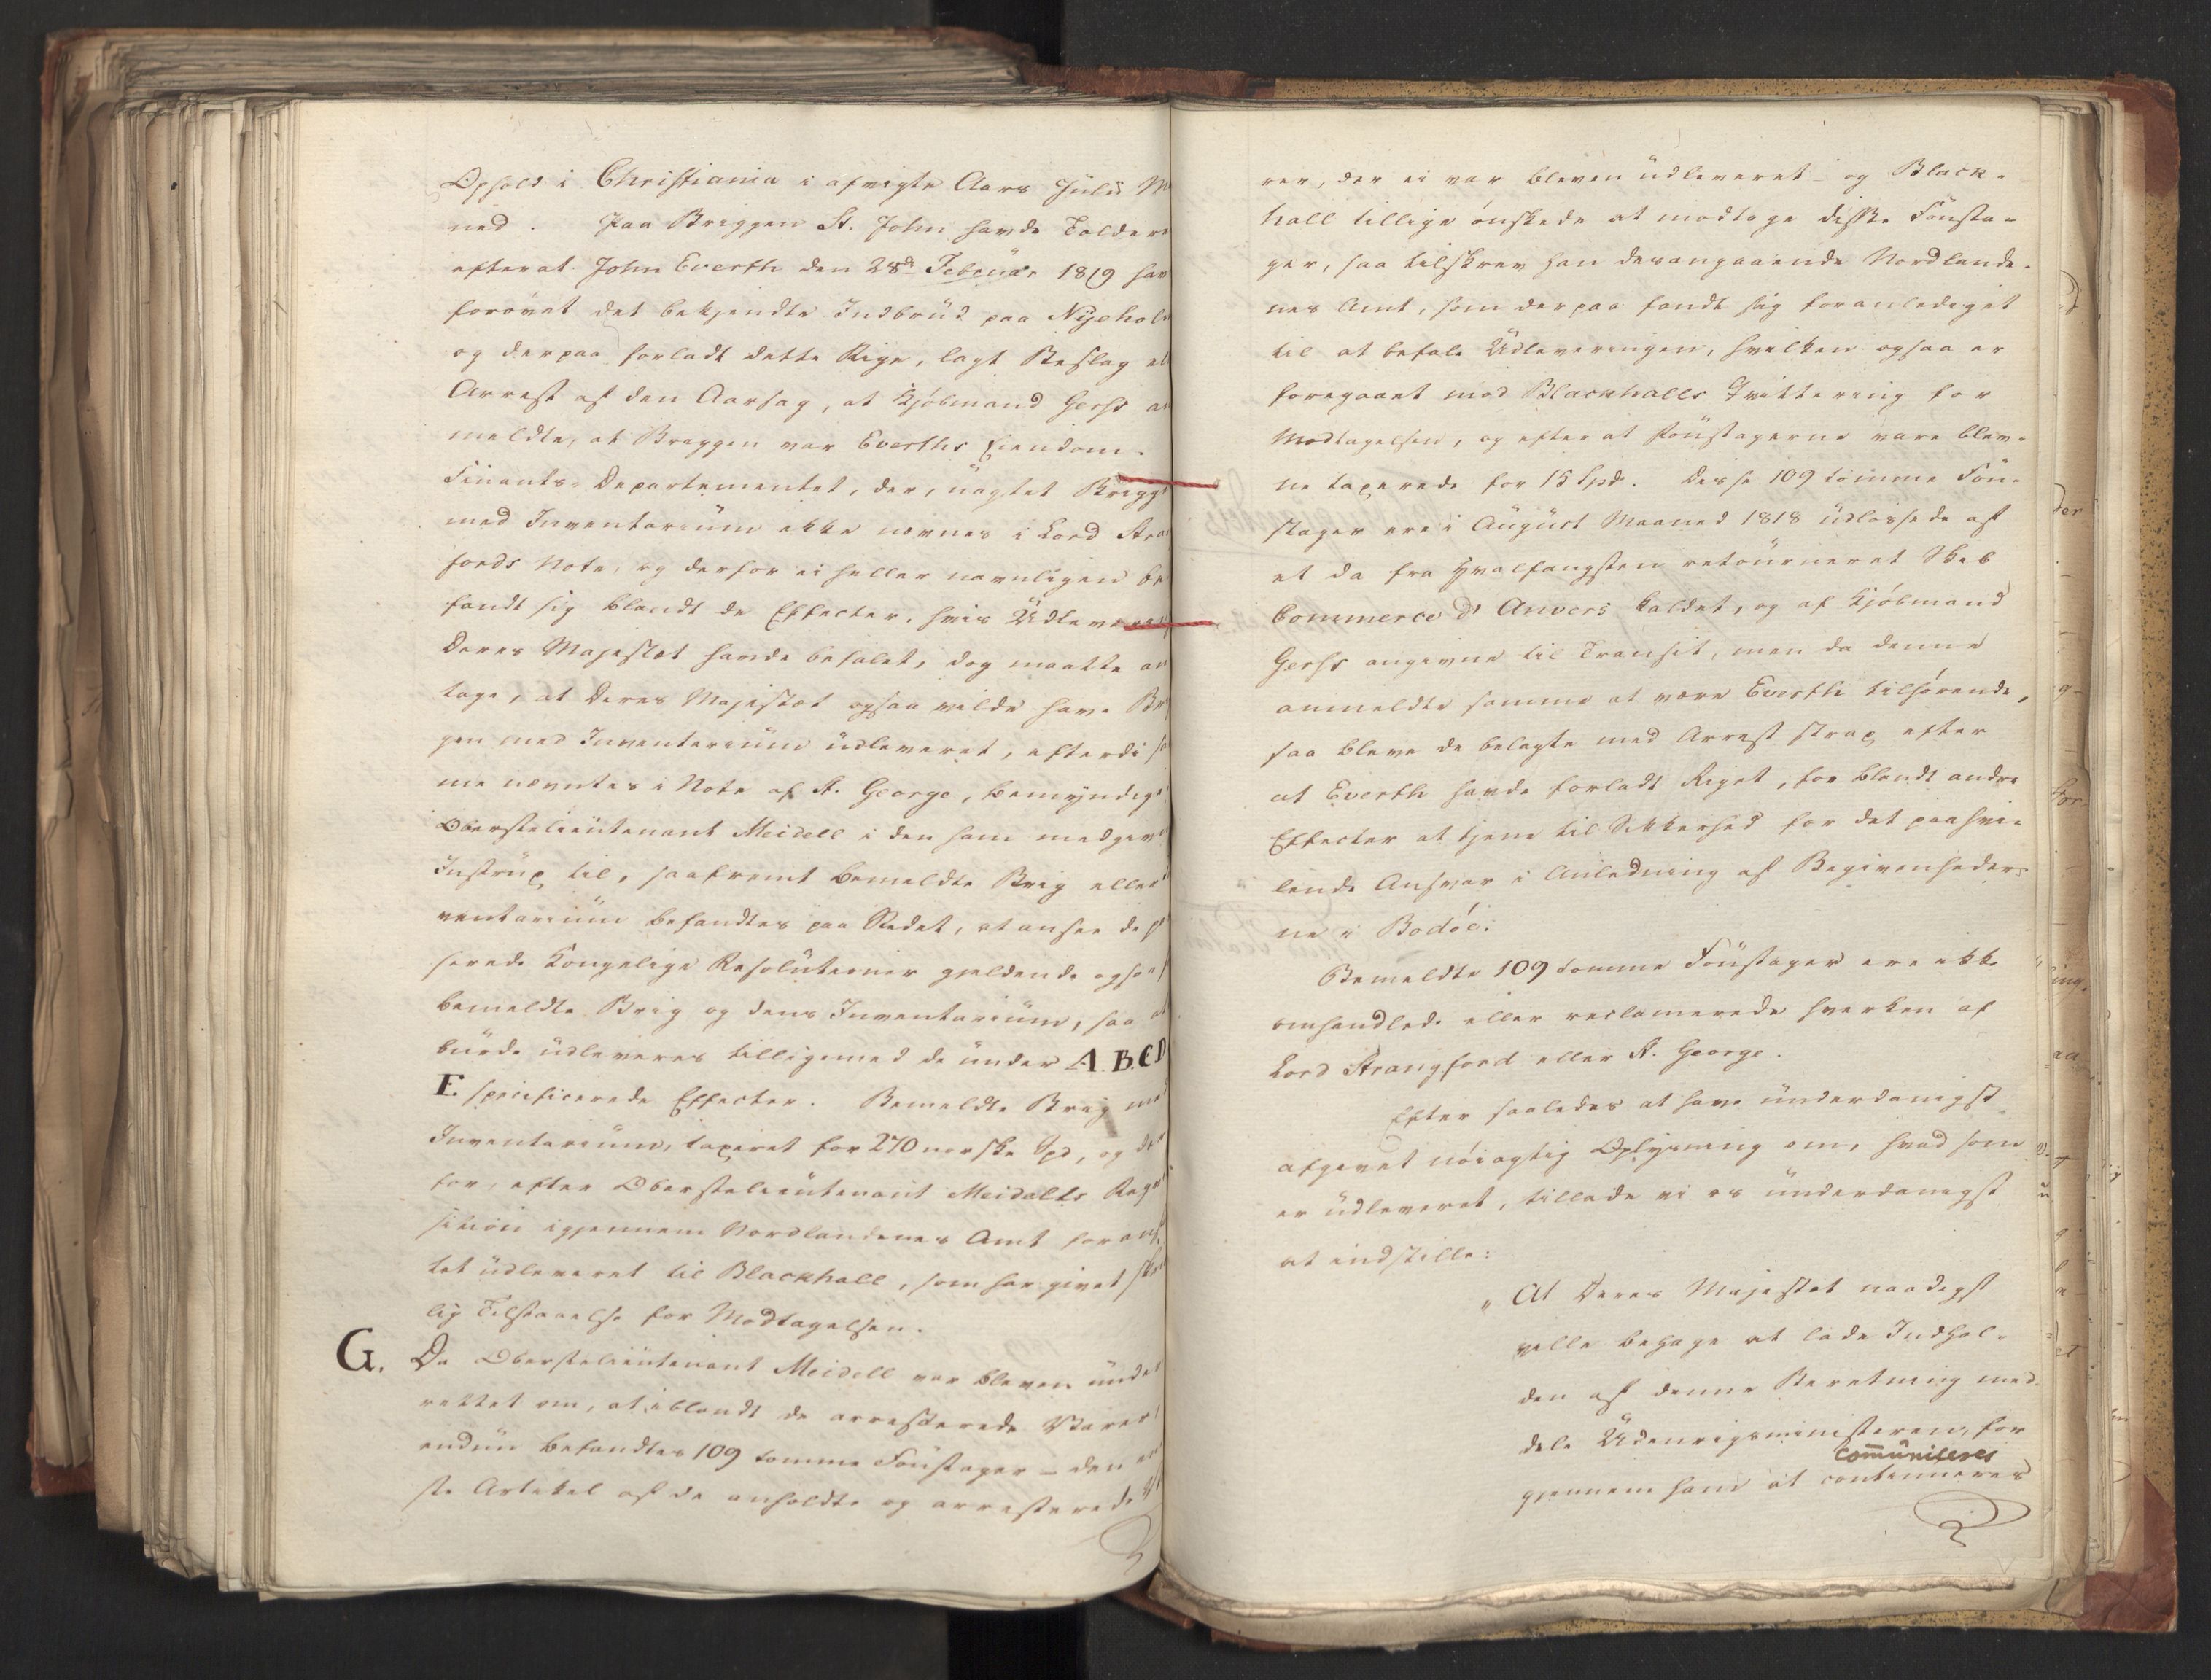 Ophold i Christiania i afvigte Aars Julii M
ned. Paa Briggen St. John havde Tolder
efterat John Everth den 28de Februar 1819 hav
forøvet det bekjendte Indbrud paa Nyehol
og derpaa forladt dette Rige, lagt Beslag el
Arrest af den Aarsag, at Kjøbmand Gerss an
meldte, at Briggen var Everths Eiendom.
Finants-Departementet, der, uagtet Brigg
med Inventarium ikke nævnes i Lord Stran
fords Note, og derfor ei heller navnligen be
fandt sig blandt de Effecter, hvis Udlever
Deres Majestæt havde befalet, dog maatte an
tage, at Deres Majestæt ogsaa vilde have Br
gen med Inventarium udleveret, efterdi sa
me nævntes i Note af St. George, bemyndig
Oberstlieutenant Meidell i den ham medgiv
Instrux til, saafremt bemeldte Brig eller
ventarium befandtes paa Stedet, at ansee de p
serede Kongelige Resolutioner gjeldende ogsaa f
bemeldte Brig og dens Inventarium, saa at
burde udleveres tilligemed de under A. B. C. D
E. specificerede Effecter. Bemeldte Brig med
Inventarium, taxeret for 270 norske Spd, og der
for, efter Oberstlieutenant Meidells Reqvi
sition igjennem Nordlandenes Amt foranst
tet udleveret til Blackhall, som har givet skri
lig Tilstaaelse for Modtagelsen.
G. Da Oberstlieutenant Meidell var bleven under
rettet om, at iblandt de arresterede Varer
endnu befandtes 109 tomme Foustager - den en
ste Artikel af de anholdte og arresterede V
rer, der ei var bleven udleveret - og Black-
hall tillige ønskede at modtage disse Fousta-
ger, saa tilskrev han desangaaende Nordlande-
nes Amt, som derpaa fandt sig foranlediget
til at befale Udleveringen, hvilken ogsaa er
foregaaet mod Blackhalls Qvittering for
Modtagelsen, og efterat Foustagerne vare blev-
ne taxerede for 15 Spd. Disse 109 tomme Fou-
stager ere i August Maaned 1818 udlossede af
et da fra Hvalfangsten retourneret Skib
Commerce d' Anvers kaldet, og af Kjøbmand
Gerss angivne til Transit, men da denne
anmeldte samme at være Everth tilhørende,
saa bleve de belagte med Arrest strax efter
at Everth havde forladt Riget, for blandt andre
Effecter at tjene til Sikkerhed for det paahvi-
lende Ansvar i Anledning af Begivenheder-
ne i Bodøe.
Bemeldte 109 tomme Foustager ere ikke
omhandlede eller reclamerede hverken af
Lord Strangford eller St. George.
Efter saaledes at have underdanigst
afgivet nøiagtig Oplysning om, hvad som
er udleveret, tillade vi os underdanigst
at indstille:
„At Deres Majestæt naadigst
ville behage at lade Indhol-
den af denne Beretning med-
dele Udenrigsministeren, for
communiceres
gjennem ham at continueres